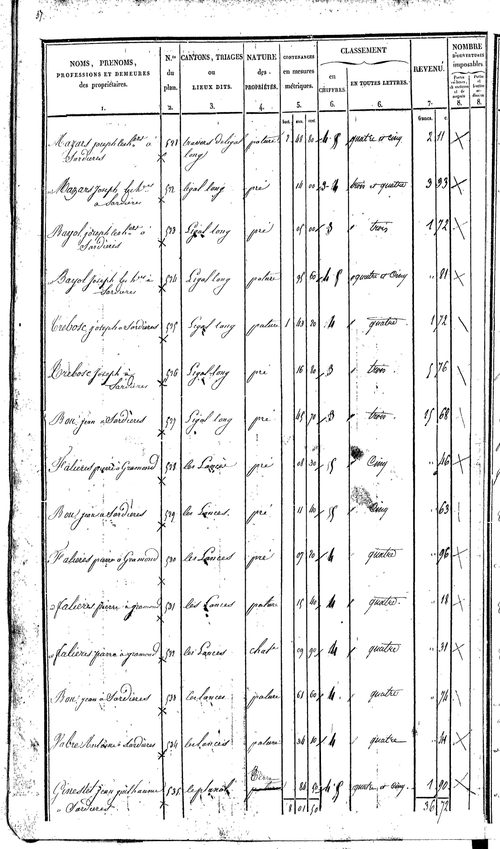 37.
NOMS, PRENOMS, PROFESSIONS ET DEMEURES des propriétaires. N.os du plan. CANTONS, TRIAGES ou LIEUX DITS. NATURE des PROPRIÉTÉS. CONTENANCES en mesures métriques. CLASSEMENT en CHIFFRES. EN TOUTES LETTRES. REVENU. NOMBRE D'OUVERTURES imposables
1. 2. 3. 4. 5. 6. 6. 7. 8. 8.
hect. ares cent. francs. c.
Mazars joseph à Sardieres 521 travers de ligal long pature 2 48 80 4 5 quatre et cinq 2 11
Mazars Joseph à Sardieres 522 ligal long pré 16 00 3 4 trois et quatre 3 93
Bayol joseph à Sardieres 523 Ligal long pré 05 00 3 trois 1 72
Bayol Joseph à Sardieres 524 Ligal long pature 95 60 4 5 quatre et Cinq " 81
Trebosc joseph a Sardieres 525 Ligal long pature 1 43 20 4 quatre 1 72
Trebosc Joseph à Sardieres 526 Ligal long pré 16 80 3 trois 5 76
Bou jean à Sardieres 527 Ligal long pré 45 70 3 trois 15 68
Falieres pierre à Gramond 528 les Lances pré 08 30 5 Cinq " 46
Bou jean à Sardieres 529 les Lances. pré 11 40 5 Cinq " 63
Falieres pierre à Gramond 530 les Lances pré 07 20 4 quatre " 96
falieres pierre a gramond 531 les Lances pature 15 40 4 quatre. " 18
falieres pierre a gramond 532 les Lances 09 90 4 quatre " 31
Bou jean à Sardieres 533 les lances pature 61 60 4 quatre " 74
Fabre Antoine à Sardieres 534 les lances pature 36 10 4 quatre " 44
Ginestet jean guillaume a Sardieres 535 le planol 4 5 quatre et cinq. 1 90
8 01 50 36 72